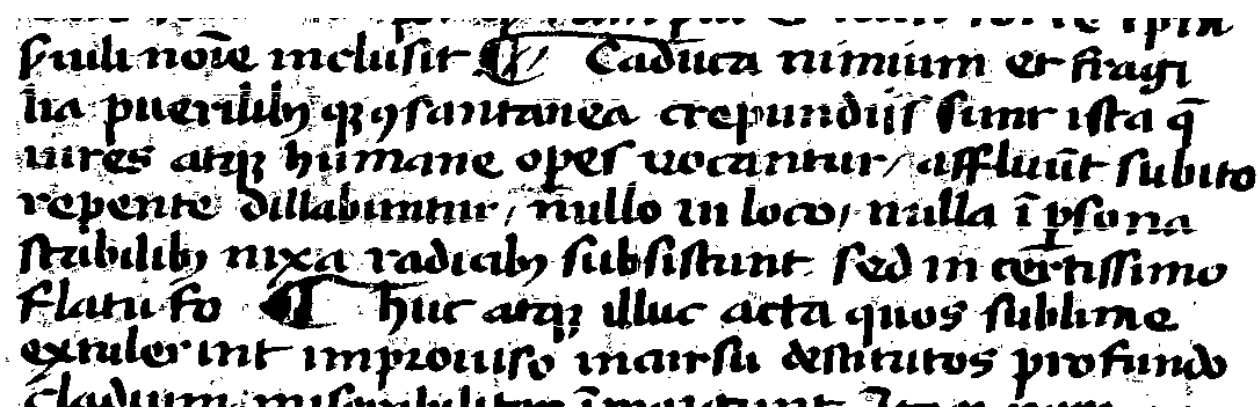 s̄uili noīe inclusit ¶ Caduca nimium et fragi
lia puerilibꝫ qꝫ ꝯsantanea crepundijs sunt ista q̄
uires atqꝫ humane opes uocantur / affluūt subito
repente dillabuntur / nullo in loco / nulla ī ꝑsona
stabilibꝫ nixa radicibꝫ subsistunt sed in certissimo
flatu fo ¶ huc atqꝫ illuc acta quos sublime
extulerint improuiso incursu destitutos profundo
cladium miserabiliter īmergunt